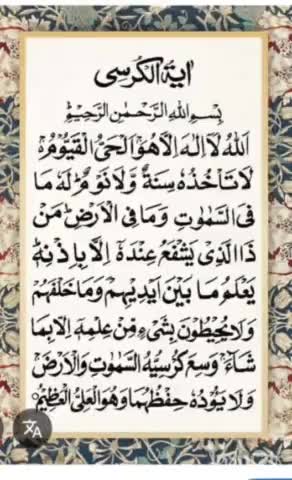 اٰيَةُ الْكُرْسِى
بِسْمِ اللهِ الرَّحْمٰنِ الرَّحِيْمِ
اَللهُ لَآ اِلٰهَ اِلَّا هُوَ الْحَىُّ الْقَيُّوْمُ
لَا تَاْخُذُهٗ سِنَةٌ وَّلَا نَوْمٌ لَهٗ مَا
فِى السَّمٰوٰتِ وَمَا فِى الْاَرْضِ مَنْ
ذَا الَّذِىْ يَشْفَعُ عِنْدَهٗٓ اِلَّا بِاِذْنِهٖ
يَعْلَمُ مَا بَيْنَ اَيْدِيْهِمْ وَمَا خَلْفَهُمْ
وَلَا يُحِيْطُوْنَ بِشَىْءٍ مِّنْ عِلْمِهٖٓ اِلَّا بِمَا
شَآءَ وَسِعَ كُرْسِيُّهُ السَّمٰوٰتِ وَالْاَرْضَ
وَلَا يَـُٔوْدُهٗ حِفْظُهُمَا وَهُوَ الْعَلِىُّ الْعَظِيْمُ